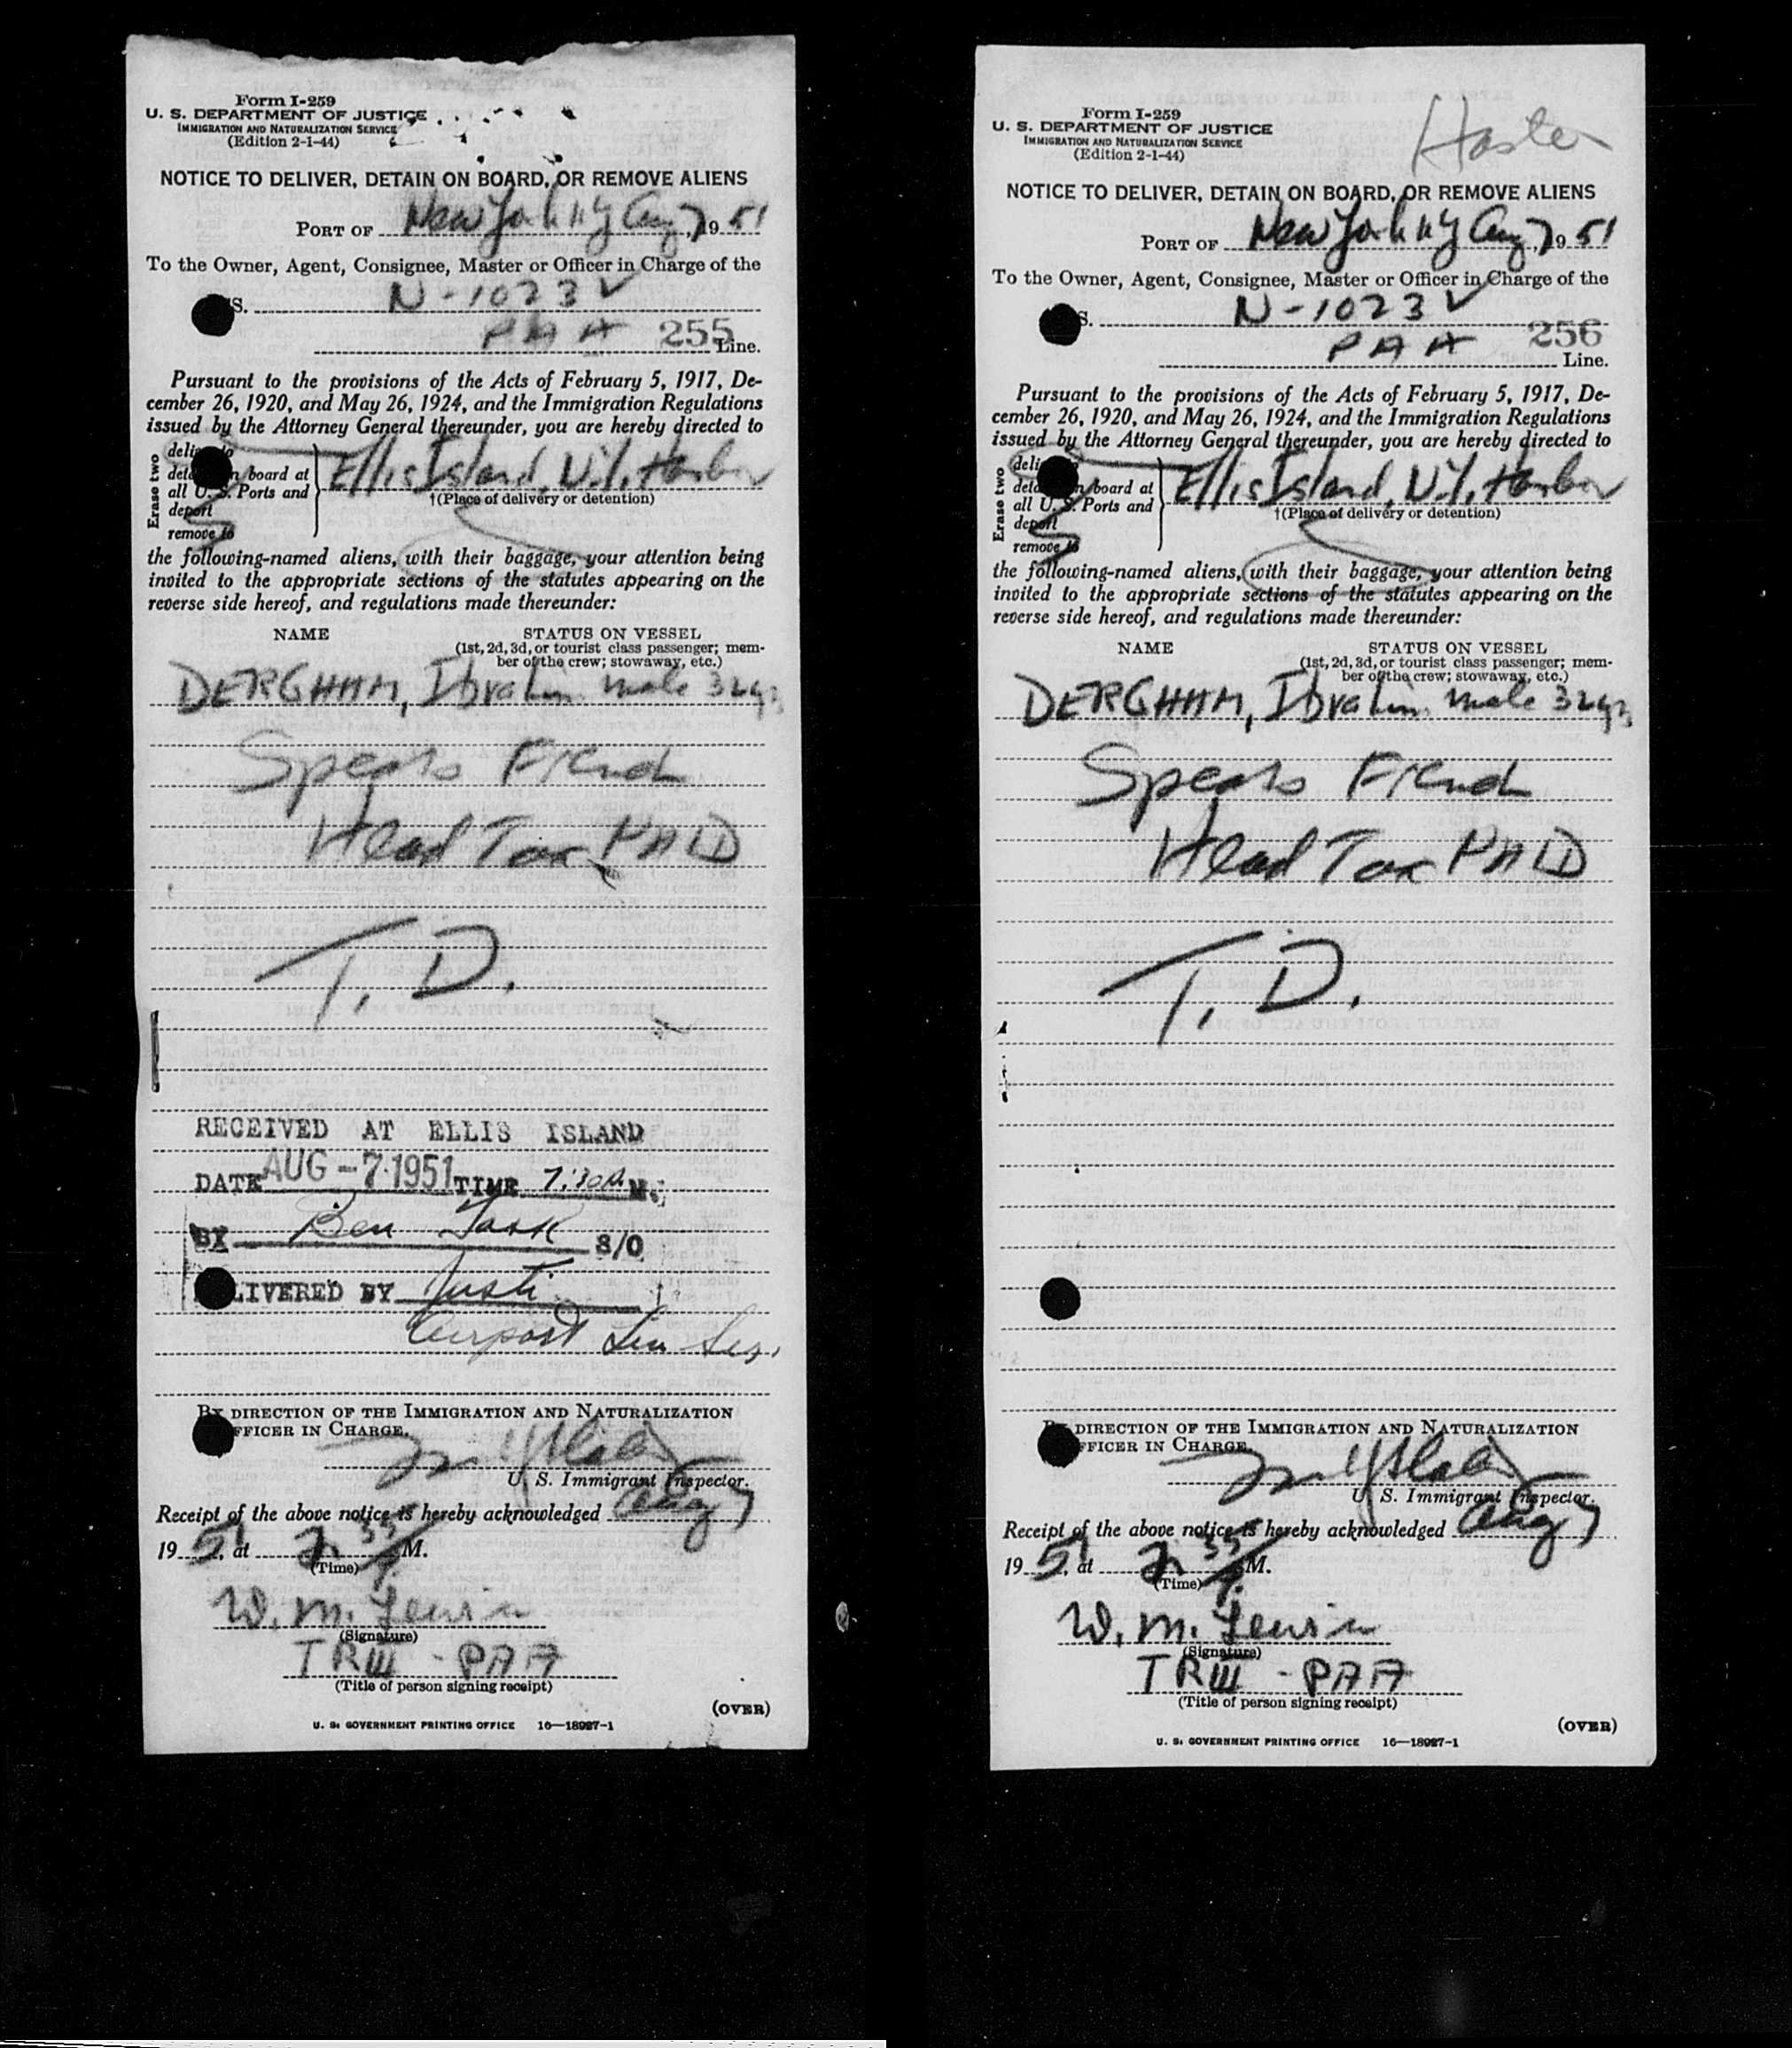 Form I-259
U. S. DEPARTMENT OF JUSTICE
IMMIGRATION AND NATURALIZATION SERVICE
(Edition 2-1-44)
NOTICE TO DELIVER, DETAIN ON BOARD, OR REMOVE ALIENS
PORT OF New York NY Aug 7, 1951
To the Owner, Agent, Consignee, Master or Officer in Charge of the
S. N-1023V
PAA 255 Line.
Pursuant to the provisions of the Acts of February 5, 1917, De-
cember 26, 1920, and May 26, 1924, and the Immigration Regulations
issued by the Attorney General thereunder, you are hereby directed to
Erase two
deliver to
detain on board at
all U. S. Ports and
deport
remove to
Ellis Island, N.Y. Harbor
†(Place of delivery or detention)
the following-named aliens, with their baggage, your attention being
invited to the appropriate sections of the statutes appearing on the
reverse side hereof, and regulations made thereunder:
NAME STATUS ON VESSEL
(1st, 2d, 3d, or tourist class passenger; mem-
ber of the crew; stowaway, etc.)
DERGHAM, Ibrahim male 32yrs
Speaks French
Head Tax PAID
T. D.
RECEIVED AT ELLIS ISLAND
DATE AUG -7 1951 TIME 7:30 P. M.
BY Ben S/O
DELIVERED BY
Airport
BY DIRECTION OF THE IMMIGRATION AND NATURALIZATION
OFFICER IN CHARGE.
U. S. Immigrant Inspector.
Receipt of the above notice is hereby acknowledged Aug 7
1951, at 2:35 P.M.
(Time)
W. M. Lewin
(Signature)
TR III - PAA
(Title of person signing receipt)
(OVER)
U. S. GOVERNMENT PRINTING OFFICE 16—18927-1
Form I-259
U. S. DEPARTMENT OF JUSTICE
IMMIGRATION AND NATURALIZATION SERVICE
(Edition 2-1-44)
NOTICE TO DELIVER, DETAIN ON BOARD, OR REMOVE ALIENS
PORT OF New York NY Aug 7, 1951
To the Owner, Agent, Consignee, Master or Officer in Charge of the
S. N-1023V
PAA 256
Line.
Pursuant to the provisions of the Acts of February 5, 1917, De-
cember 26, 1920, and May 26, 1924, and the Immigration Regulations
issued by the Attorney General thereunder, you are hereby directed to
Erase two
deliver to
detain on board at
all U. S. Ports and
deport
remove to
Ellis Island, N.Y. Harbor
†(Place of delivery or detention)
the following-named aliens, with their baggage, your attention being
invited to the appropriate sections of the statutes appearing on the
reverse side hereof, and regulations made thereunder:
NAME STATUS ON VESSEL
(1st, 2d, 3d, or tourist class passenger; mem-
ber of the crew; stowaway, etc.)
DERGHAM, Ibrahim male 32yrs
Speaks French
Head Tax PAID
T. D.
BY DIRECTION OF THE IMMIGRATION AND NATURALIZATION
OFFICER IN CHARGE.
U. S. Immigrant Inspector.
Receipt of the above notice is hereby acknowledged Aug 7
1951, at 2:35 P.M.
(Time)
W. M. Lewin
(Signature)
TR III - PAA
(Title of person signing receipt)
(OVER)
U. S. GOVERNMENT PRINTING OFFICE 16—18927-1